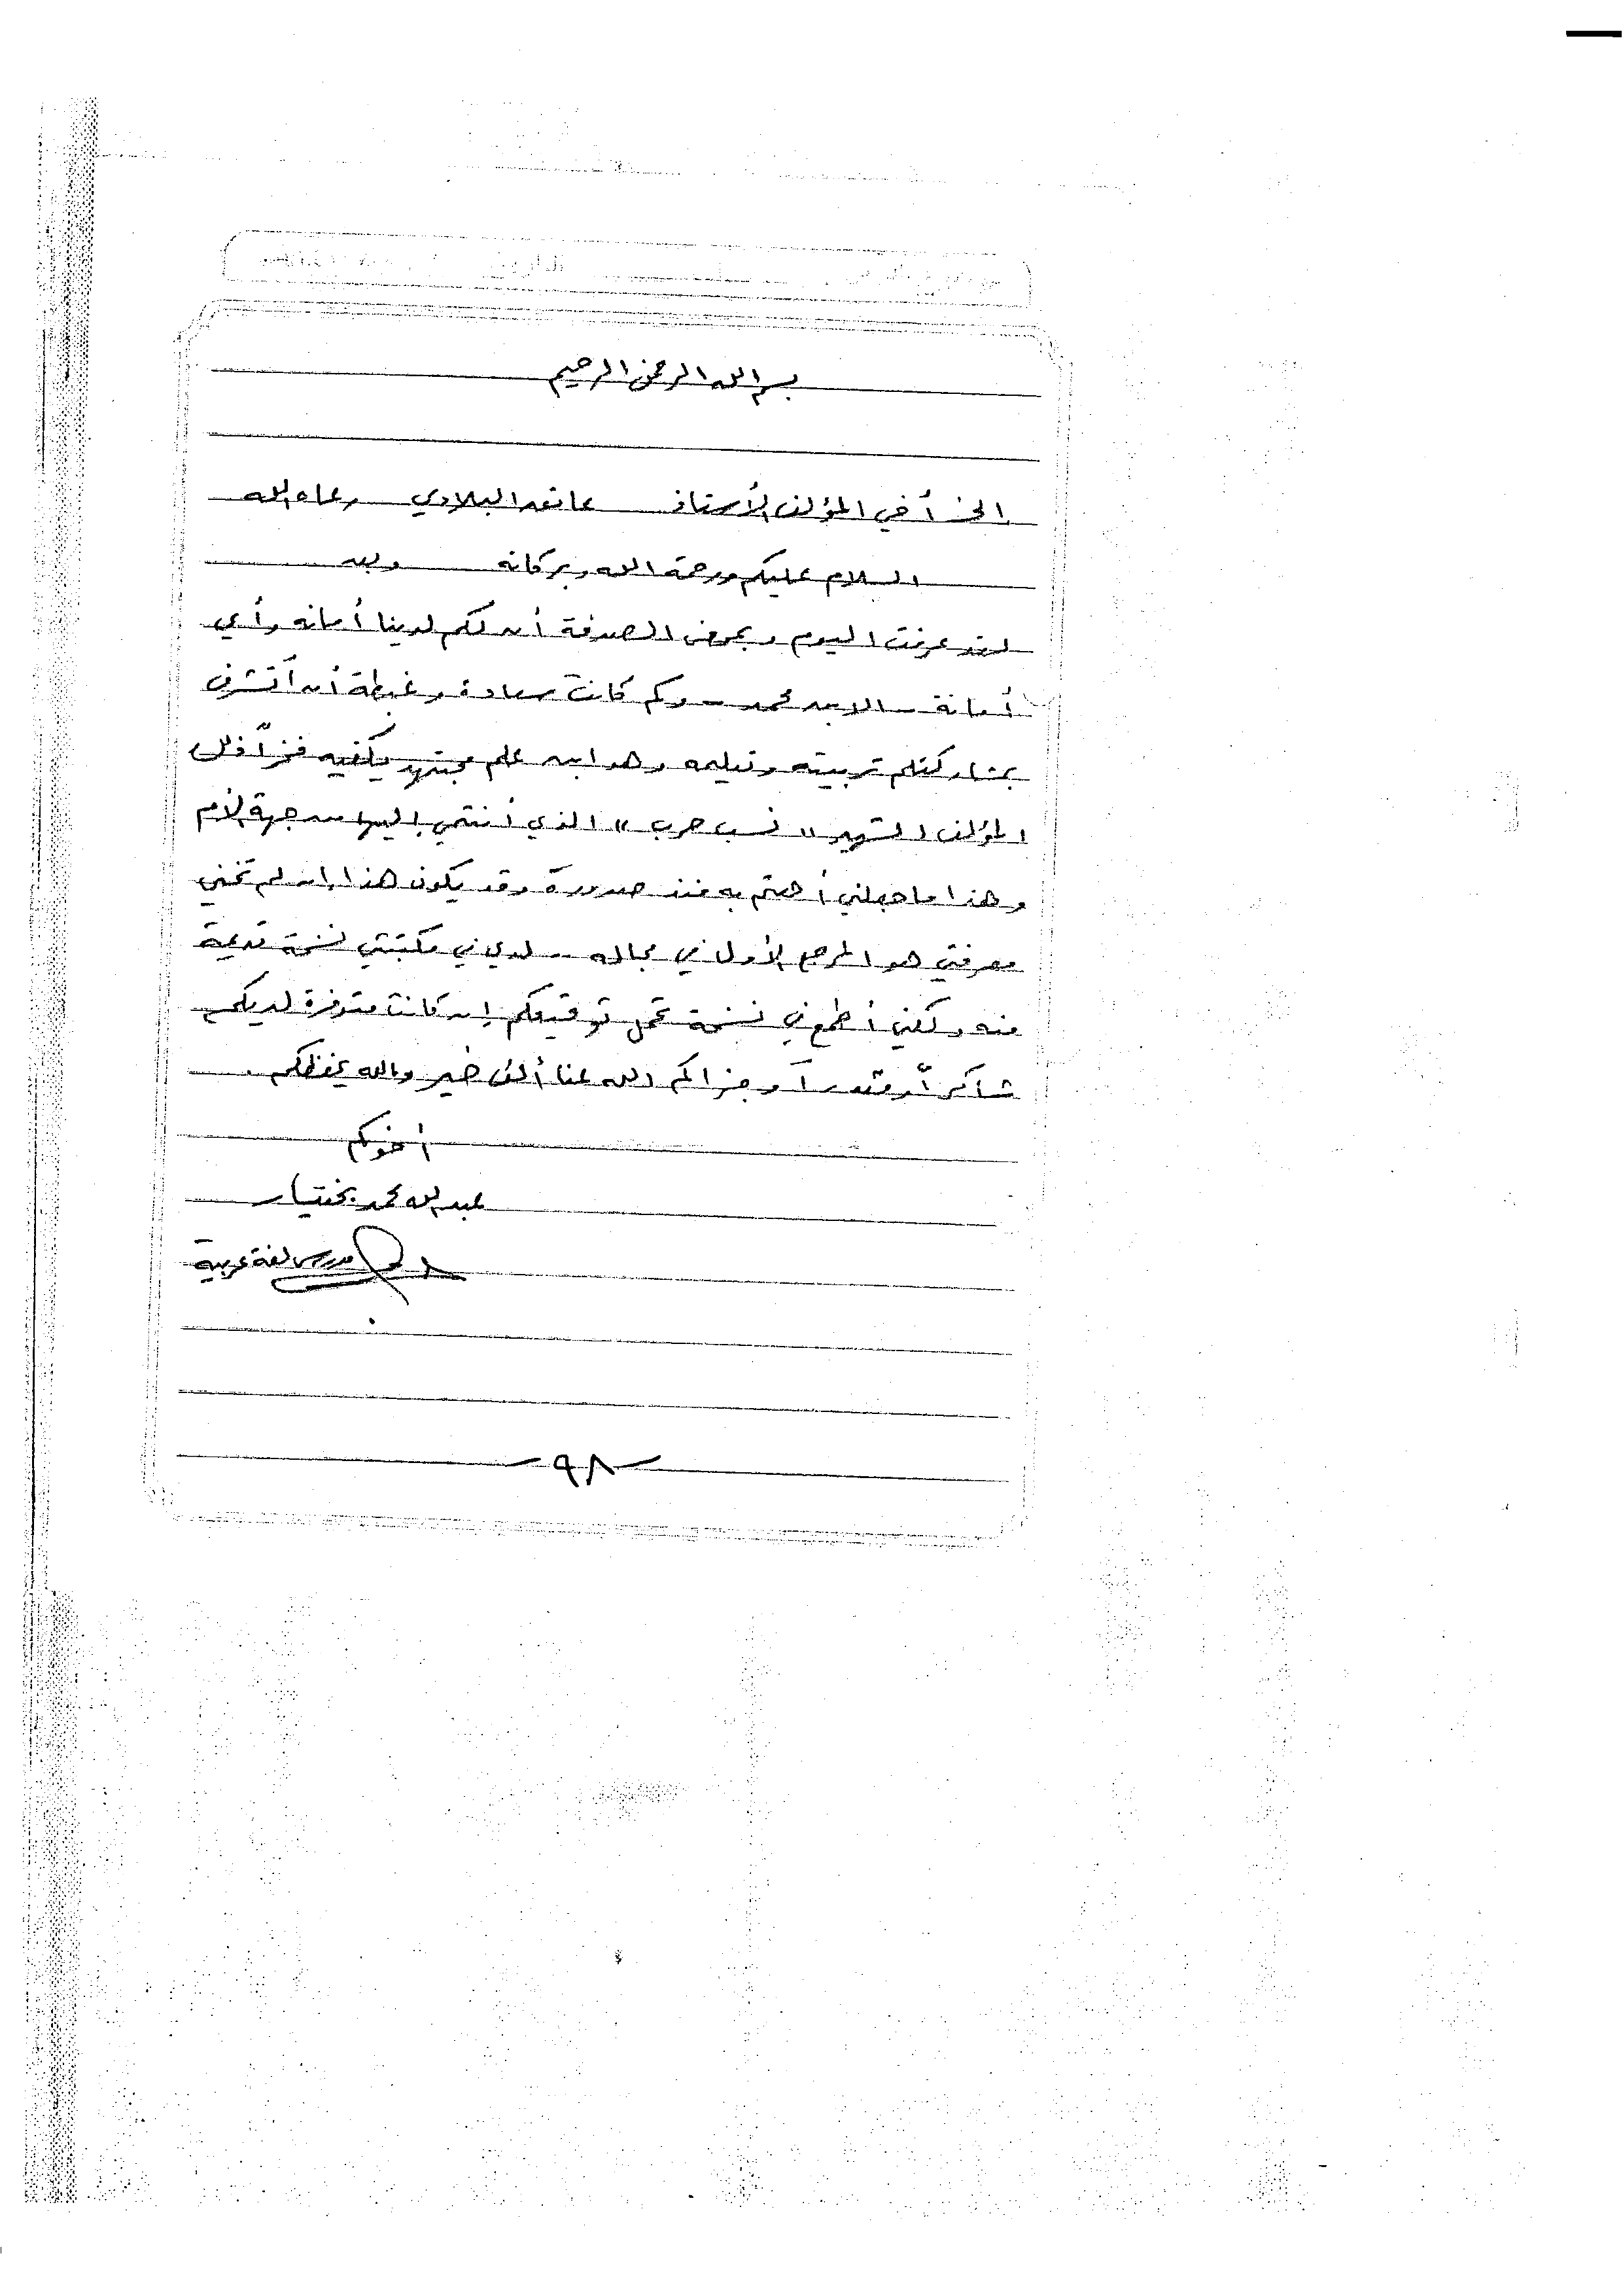 بسم الله الرحمن الرحيم
الى أخي المؤلف الأستاذ عاتق البلادي رعاه الله
السلام عليكم ورحمة الله وبركاته وبعد
لقد عرفت اليوم وبمحض الصدفة أن لكم لدينا أمانه وأي
أمانة - الابن محمد - وكم كانت سعادة وغبطة أن أتشرف
بمشاركتكم تربيته وتعليمه وهو ابن علم مجتهد يكفيه فخراً
المؤلف الشهير " نسب حرب " الذي أنتمي إليها من جهة الأم
وهذا ما جعلني أهتم به منذ صدورة وقد يكون هذا إن لم تخني
معرفتي هو المرجع الأول في مجاله .. لدي في مكتبتي نسخة قديمة
منه ولكني أطمع في نسخة تحمل توقيعكم إن كانت متوفرة لديكم
شاكراً ومقدراً وجزاكم الله عنا ألف خير والله يحفظكم .
أخوكم
عبد الله محمد بختيار
مدرس لغة عربية
- ٩٨ -